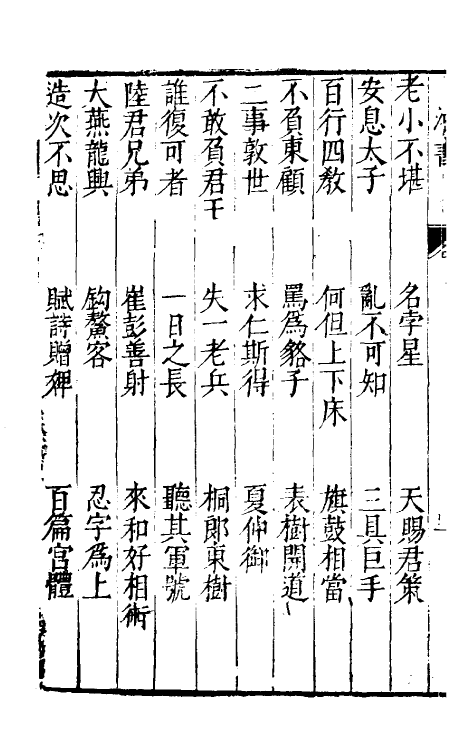 老小不堪　名孛星　天賜君策
安息太子　亂不可知　三具巨手
百行四敎　何但上下床　旗鼓相當
不負東顧　罵爲貉子　表樹開道
二事敦世　求仁斯得　夏仲御
不敢負君王　失一老兵　桐郞東樹
誰復可者　一日之長　聽其軍號
陸君兄弟　崔彭善射　來和好相術
大燕龍興　釣鰲客　忍字爲上
造次不思　賦詩贈　百篇宮體